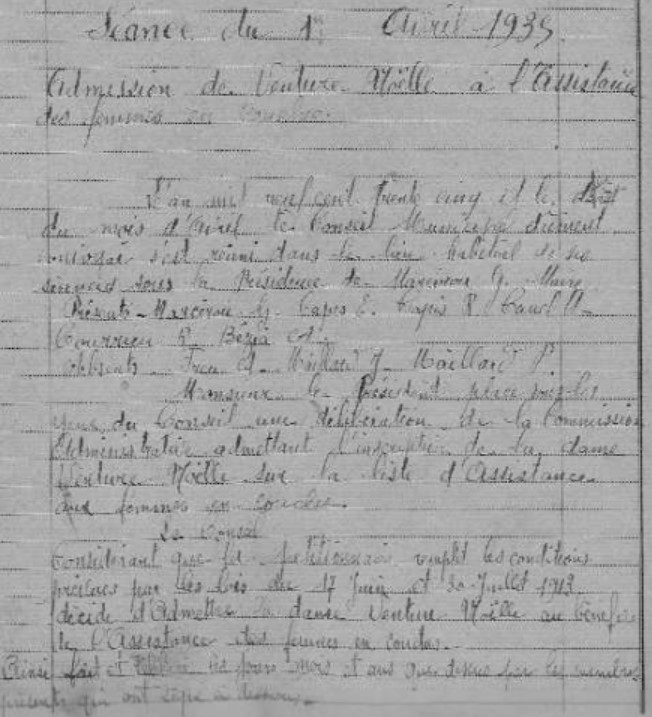 Séance du 1er Avril 1935
Admission de Venture Noëlle à l'Assistance
des femmes en couches.
L'an mil neuf cent trente cinq et le
du mois d'Avril le Conseil Municipal dûment
convoqué s'est réuni dans le lieu habituel de ses
séances sous la Présidence de G. Maire
Présents - G. Capes E. R.
R. Bézia A.
Absents A. Maillard J. Maillard P.
Monsieur le Président place sous les
yeux du Conseil une délibération de la Commission
Administrative admettant l'inscription de la dame
Venture Noëlle sur la liste d'Assistance
aux femmes en couches.
Le Conseil
Considérant que la pétitionnaire remplit les conditions
par les lois du 17 Juin et 30 Juillet 1913
décide d'Admettre la dame Venture Noëlle au bénéfice
de l'Assistance des femmes en couches.
Ainsi fait et délibéré les jours mois et ans que dessus par les membres
présents qui ont signé à dessous.